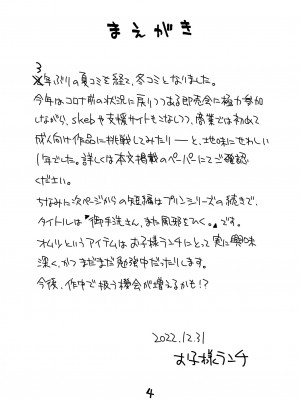 まえがき
3年ぶりの夏コミを経て、冬コミとなりました。
今年はコロナ前の状況に戻りつつある即売会に極力参加
しながら、skebや支援サイトをこなしつつ、商業では初めて
成人向け作品に挑戦してみたり――と、地味にせわしい
1年でした。詳しくは本文掲載のペーパーにてご確認
ください。
ちなみに次ページからの短編はプリンシリーズの続きで、
タイトルは『御手洗さん、また風邪をひく。』です。
オムツというアイテムはお子様ランチにとって実に興味
深く、かつまだまだ勉強中だったりします。
今後、作中で扱う機会が増えるかも!?
2022.12.31
お子様ランチ
4